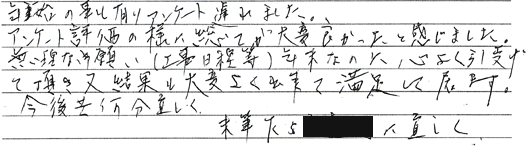 年末始の事も有りアンケート遅れました。
アンケート評価の様に総てが大変良かったと感じました。
無理なお願い（工事日程等）年末なのに、心よく引受け
て頂き又結果も大変よく出来て満足して居ます。
今後共何分宜しく
末筆ながら に宜しく